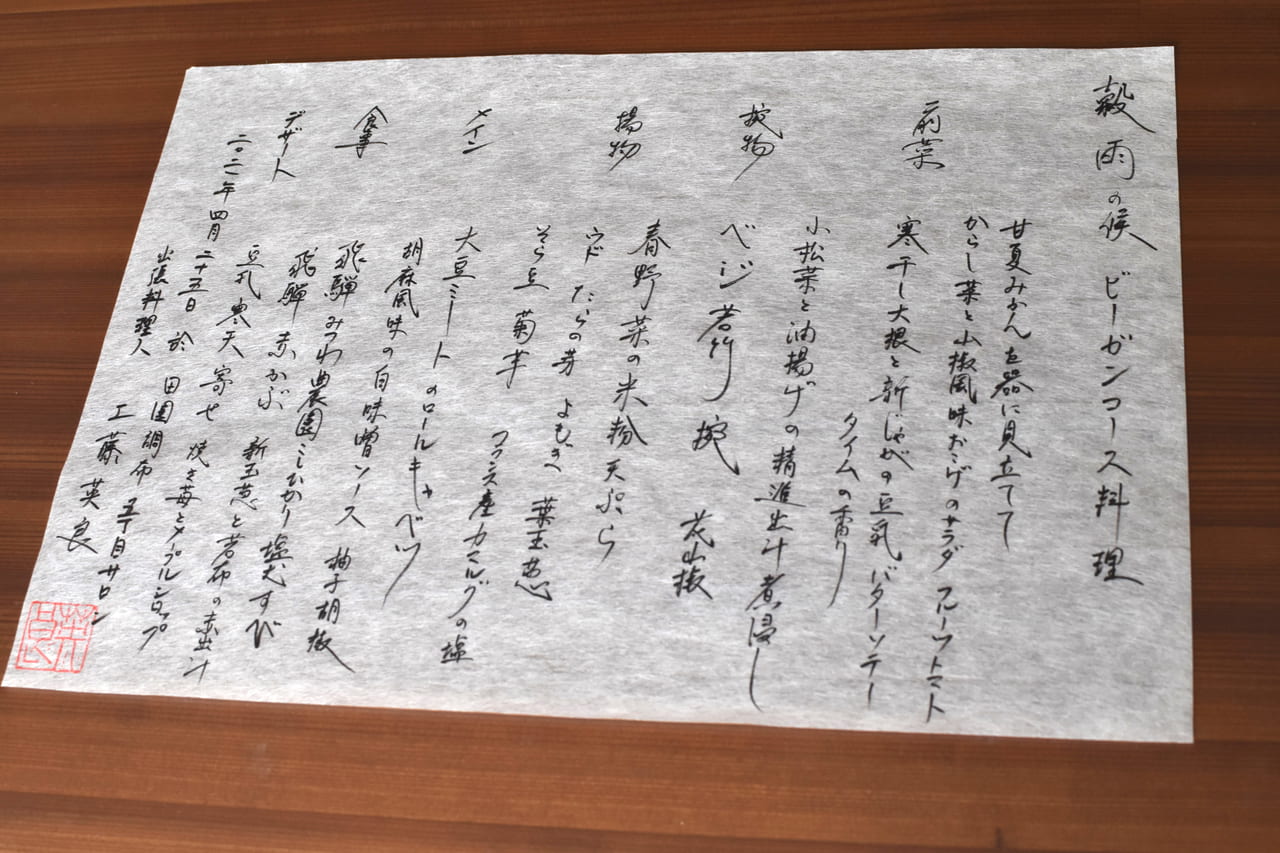 穀雨の候 ビーガンコース料理
前菜
甘夏みかんを器に見立てて
からし菜と山椒風味おこげのサラダ フルーツトマト
寒干し大根と新じゃがの豆乳バターソテー
タイムの香り
小松菜と油揚げの精進出汁煮浸し
椀物
ベジ若竹椀 花山椒
揚物
春野菜の米粉天ぷら
ウド たらの芽 よもぎ 葉玉葱
そら豆 菊芋 フランス産カマルグの塩
メイン
大豆ミートのロールキャベツ
胡麻風味の白味噌ソース 柚子胡椒
食事
飛騨みつわ農園こしひかり塩むすび
飛騨赤かぶ 新玉葱と若布の赤出汁
デザート
豆乳寒天寄せ 焼き苺とメープルシロップ
二〇二一年四月二十五日 於 田園調布 五丁目サロン
出張料理人 工藤英良